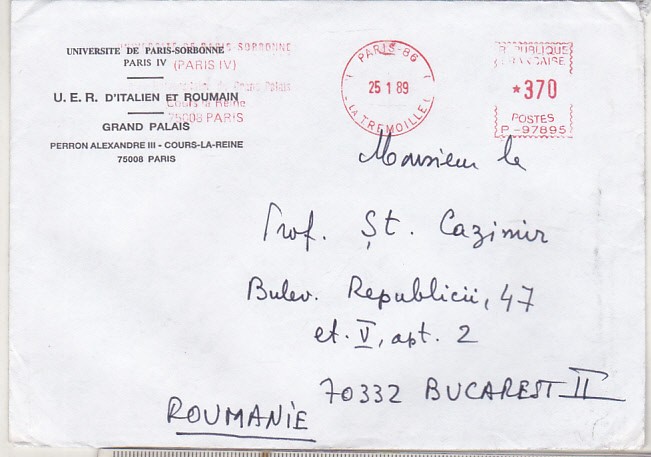 UNIVERSITE DE PARIS-SORBONNE
PARIS IV
U. E. R. D'ITALIEN ET ROUMAIN
GRAND PALAIS
PERRON ALEXANDRE III - COURS-LA-REINE
75008 PARIS
UNIVERSITE DE PARIS-SORBONNE
(PARIS IV)
Grand Palais
Cours la Reine
75008 PARIS
PARIS-86
25 1 89
LA TREMOILLE
REPUBLIQUE
FRANCAISE
*370
POSTES
P-97895
Monsieur le
Prof. Șt. Cazimir
Bulev. Republicii, 47
et. V, apt. 2
70332 BUCAREST II
ROUMANIE